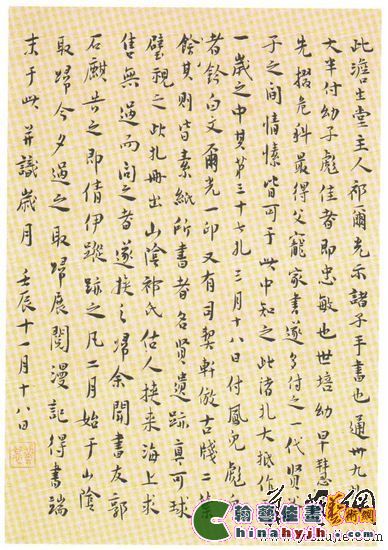 此澹生堂主人祁爾光示諸子手書也通卅九
大半付幼子彪佳者即忠敏也世培幼早慧
先掇危科最得父寵家書遂多付之一代賢
子之間情愫皆可于此中知之此諸札大抵作
一歲之中其第三十七札三月十八日付鳳兒彪兒
者鈐白文爾光一印又有司契軒倣古牋二葉
餘其則皆素紙所書者名賢遺跡真可球
璧視之此札冊出山陰祁氏估人挾來海上求
售無過而問之者遂挾之歸余聞書友郭
石麒告之即倩伊蹤跡之凡二月始于山陰
取歸今夕過之取歸展閱漫記得書端
末于此并識歲月 壬辰十一月十八日
翰艺佳画
hinahyjh.com